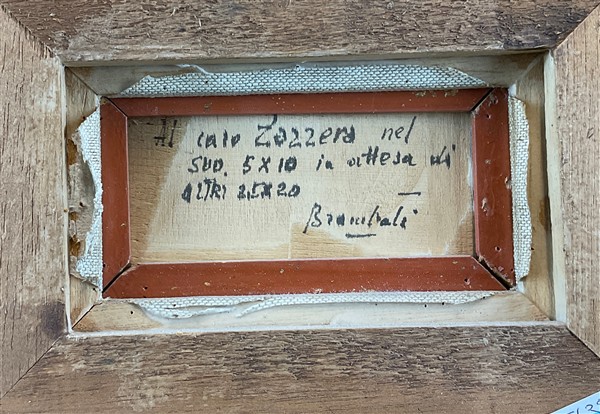 Al caro Zozzero nel
suo 5x10 in attesa di
altri 2,5x20
Brambati